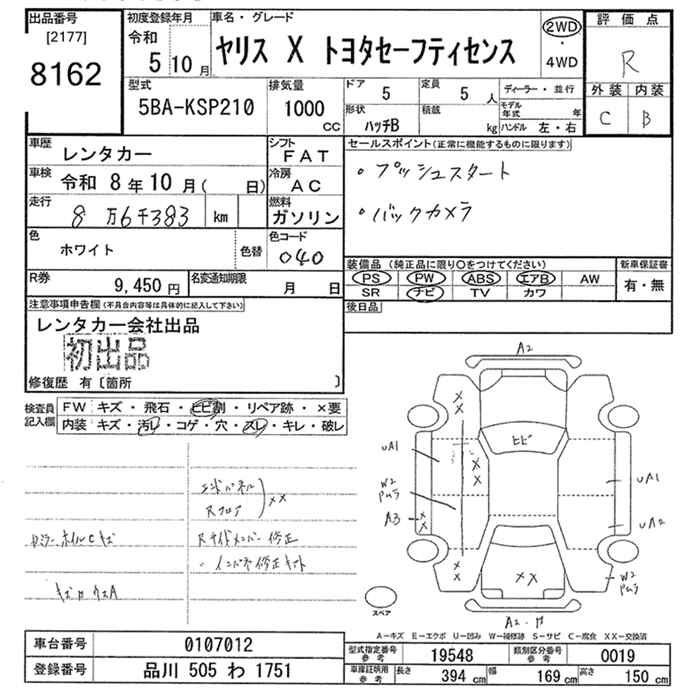 出品番号
[2177]
8162
初度登録年月
令和
5 10 月
車名・グレード
ヤリス X トヨタセーフティセンス
2WD
・
4WD
評価点
R
外装 内装
C B
型式
5BA-KSP210
排気量
1000
cc
ドア
5
定員
5 人
形状
ハッチB
積載
kg
ディーラー・並行
モデル年式 年
ハンドル 左・右
車歴
レンタカー
シフト
FAT
車検
令和 8 年 10 月 ( 日)
冷房
AC
走行
8 万6千383 km
燃料
ガソリン
色
ホワイト
色替
色コード
040
R券
9,450 円
名変通知期限
月 日
セールスポイント(正常に機能するものに限ります)
・プッシュスタート
・バックカメラ
装備品 (純正品に限り○をつけてください)
新車保証書
PS PW ABS エアB AW
SR ナビ TV カワ
有・無
後日品
注意事項申告欄(不具合内容等は具体的に記入して下さい)
レンタカー会社出品
初出品
修復歴 有〔箇所 〕
検査員
記入欄
FW キズ・飛石・ヒビ割・リペア跡・×要
内装 キズ・汚レ・コゲ・穴・スレ・キレ・破レ
エンドパネル
Rフロア
××
Rサイドメンバー修正
・インパネ修正キット
A2
××
ヒビ
UA1
××
W2
A3
××
UA1
UA2
××
××
W2
スペア
A2・
A－キズ E－エクボ U－凹み W－補修跡 S－サビ C－腐食 XX－交換済
車台番号
0107012
登録番号
品川 505 わ 1751
型式指定番号
参考
19548
類別区分番号
参考
0019
車庫証明用
参考
長さ
394 cm
幅
169 cm
高さ
150 cm